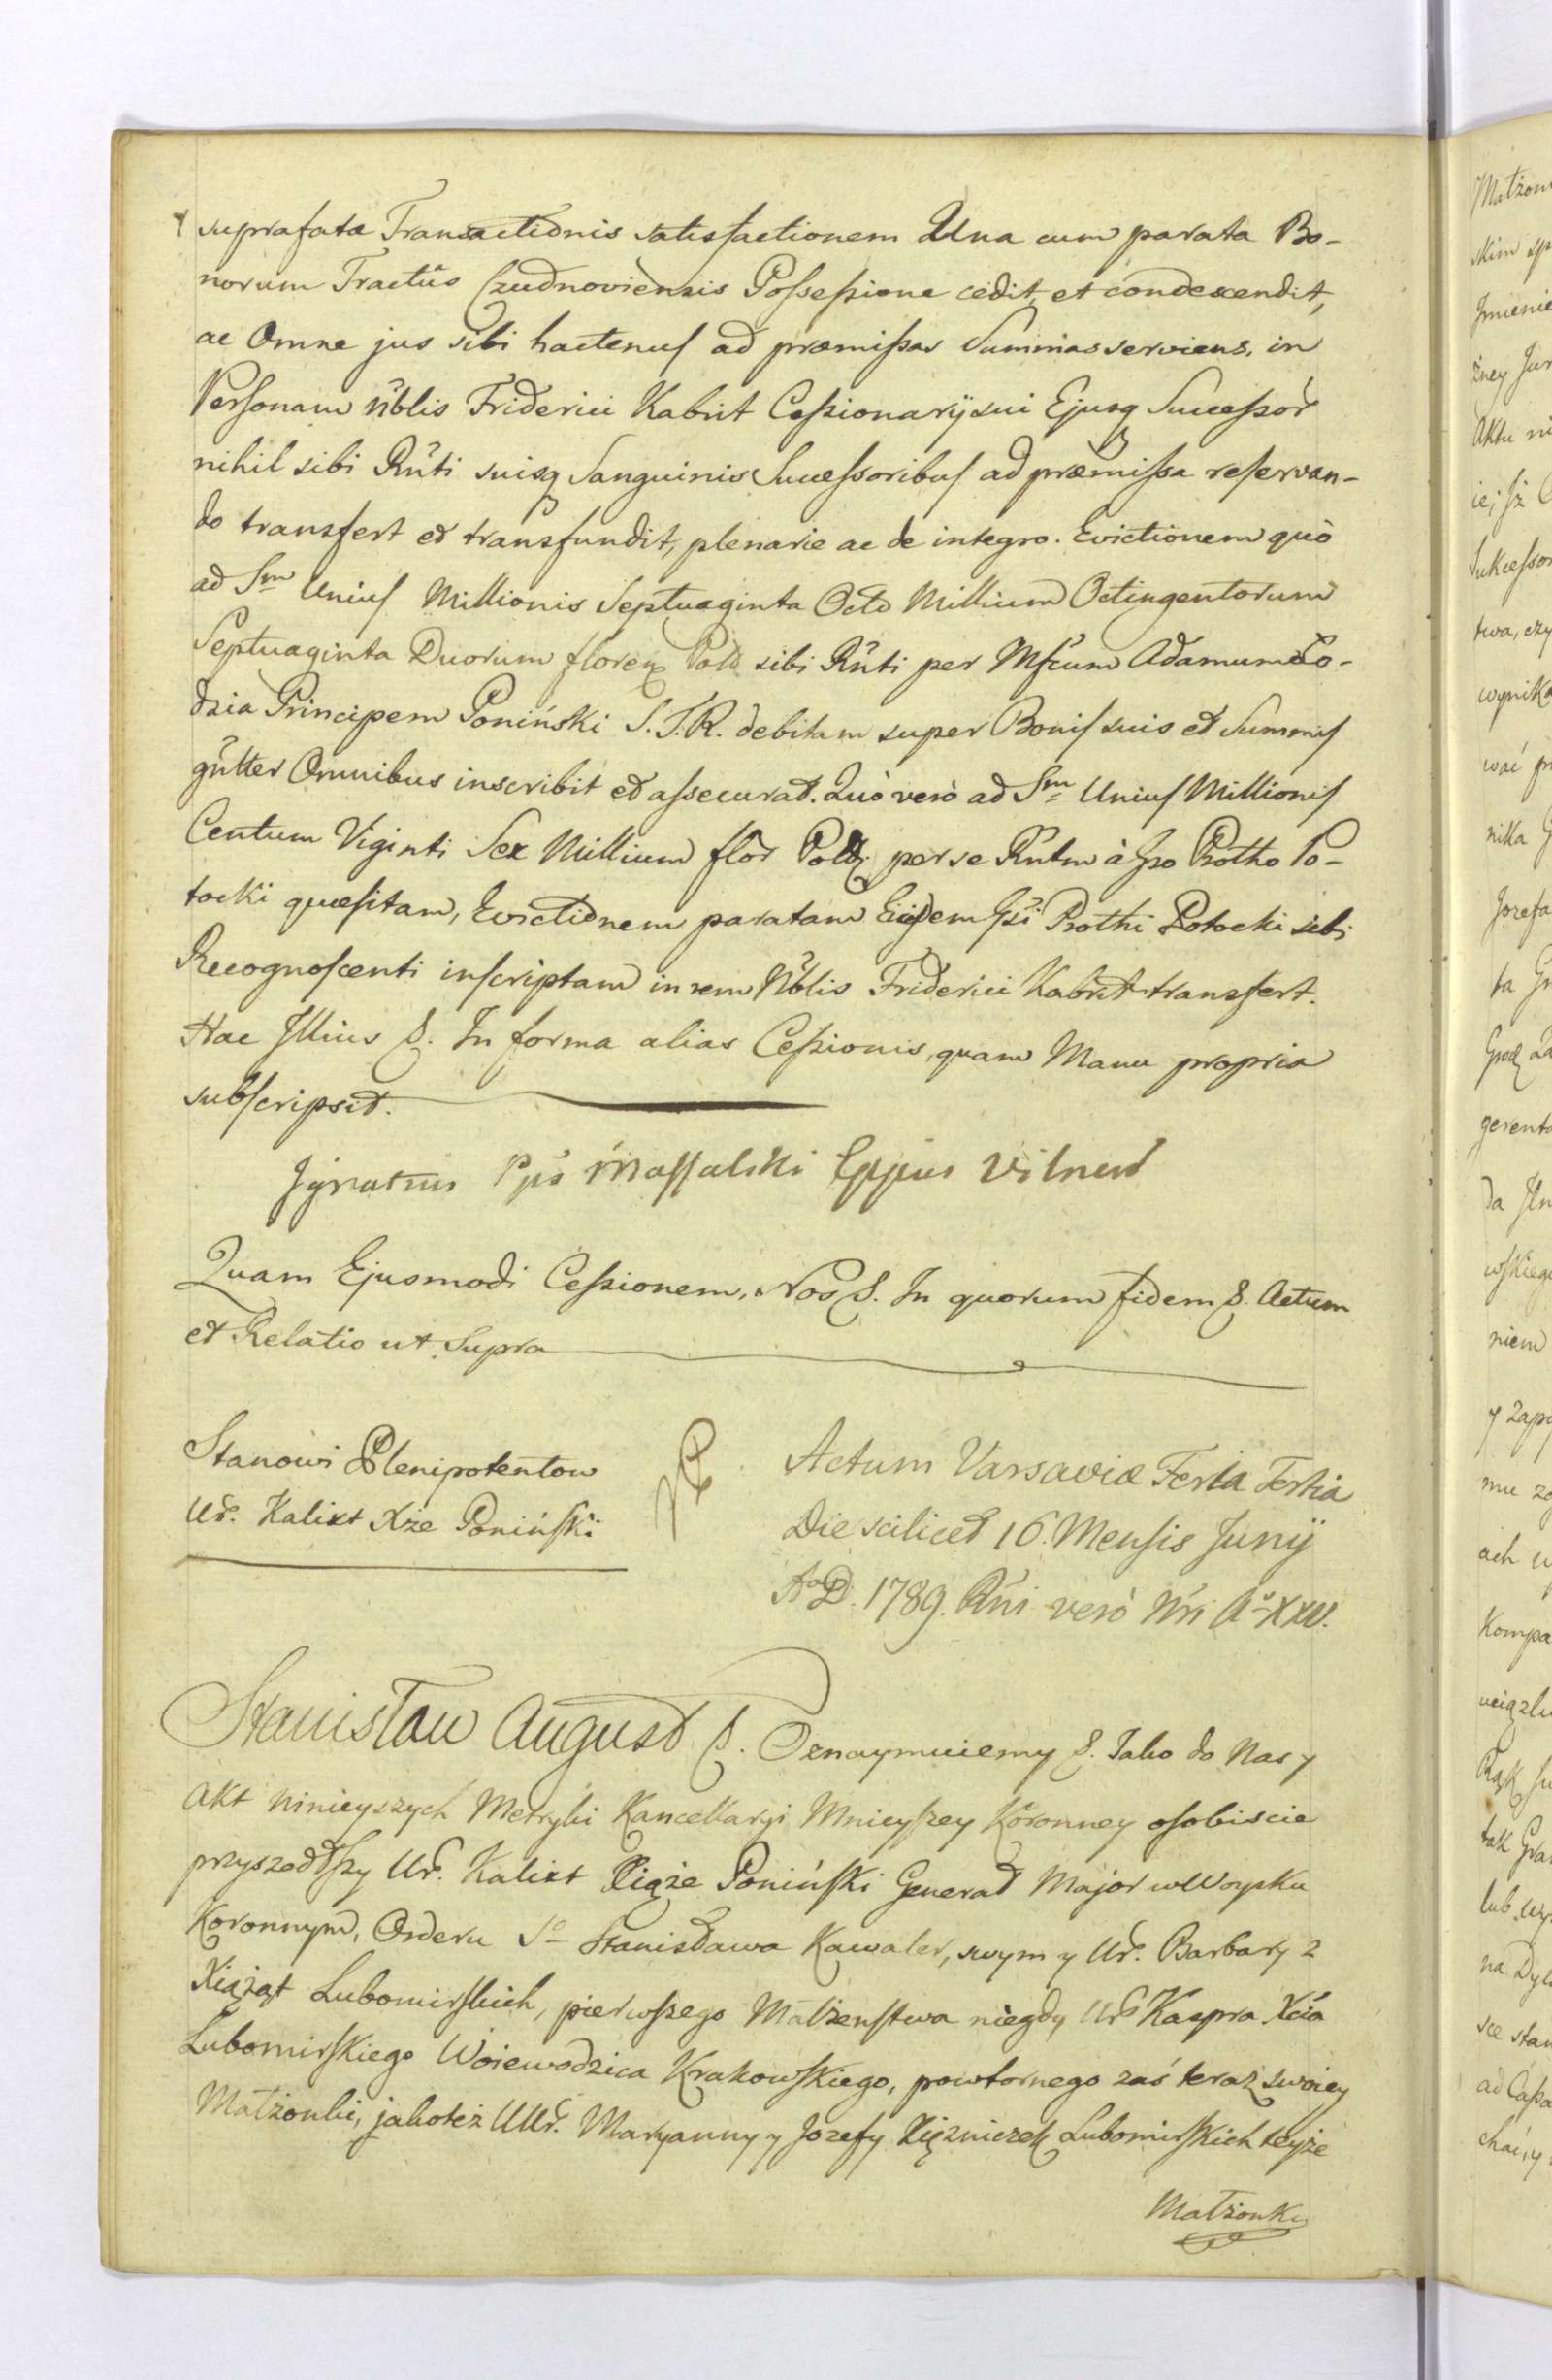 suprafatæ Transactionis satisfactionem Una cum parata Bo-
norum Tractûs Czudnoviensis Possessione cedit, et condescendit,
ac Omne jus sibi hactenus ad præmissas Summas serviens, in
Personam Nblis Friderici Kabrit Cessionarij sui Ejusq Successor
nihil sibi Rnti suisq Sanguinis Successoribus ad præmissa reservan-
do transfert et transfundit, plenarie ac de integro. Evictionem quò
ad Sm̄ Unius Millionis Septuaginta Octo Millium Octingentorum
Septuaginta Duorum floren Pold sibi Rnti per Mfcum Adamum Lo-
dzia Principem Poniński S.T.R. debitam super Bonis suis et Summis
gntter Omnibus inscribit et assecurat. Quò verò ad Sm̄ Unius Millionis
Centum Viginti Sex Millium flor Pold per se Rntm à Gso Protho Po-
tocki quæsitam, Evictionem paratam Eisdem Gsi Prothi Potocki sibi
Recognoscenti inscriptam in rem Nblis Friderici Kabrit transfert.
Hac Illius &. In forma alias Cessionis, quam Manu propria
subscripsit.
Ignatius Pps Massalski Eppus Vilnens
Quam Ejusmodi Cessionem, Nos &. In quorum fidem &. Actum
et Relatio ut Supra
Stanowi Plenipotentow
Ur. Kalixt Xże Poniński
Actum Varsaviæ Feria Tertia
Die scilicet 16. Mensis Junij
Ao D. 1789. Rni verò Nri Ao XXV.
Stanisław August &. Oznaymuiemy &. Jako do Nas y
Akt ninieyszych Metryki Kancellaryi Mnieyszey Koronney osobiscie
przyszedłszy Ur. Kalixt Xiąże Poniński Generał Major w Woysku
Koronnym, Orderu So Stanisława Kawaler, swym y Ur. Barbary z
Xiążąt Lubomirskich, pierwszego Małżenstwa niegdy Ur Kaspra Xcia
Lubomirskiego Woiewodzica Krakowskiego, powtornego zaś teraz swoiey
Małżonki, jakoteż UUr. Maryanny y Jozefy Xięzniczek Lubomirskich teyże
Małżonki